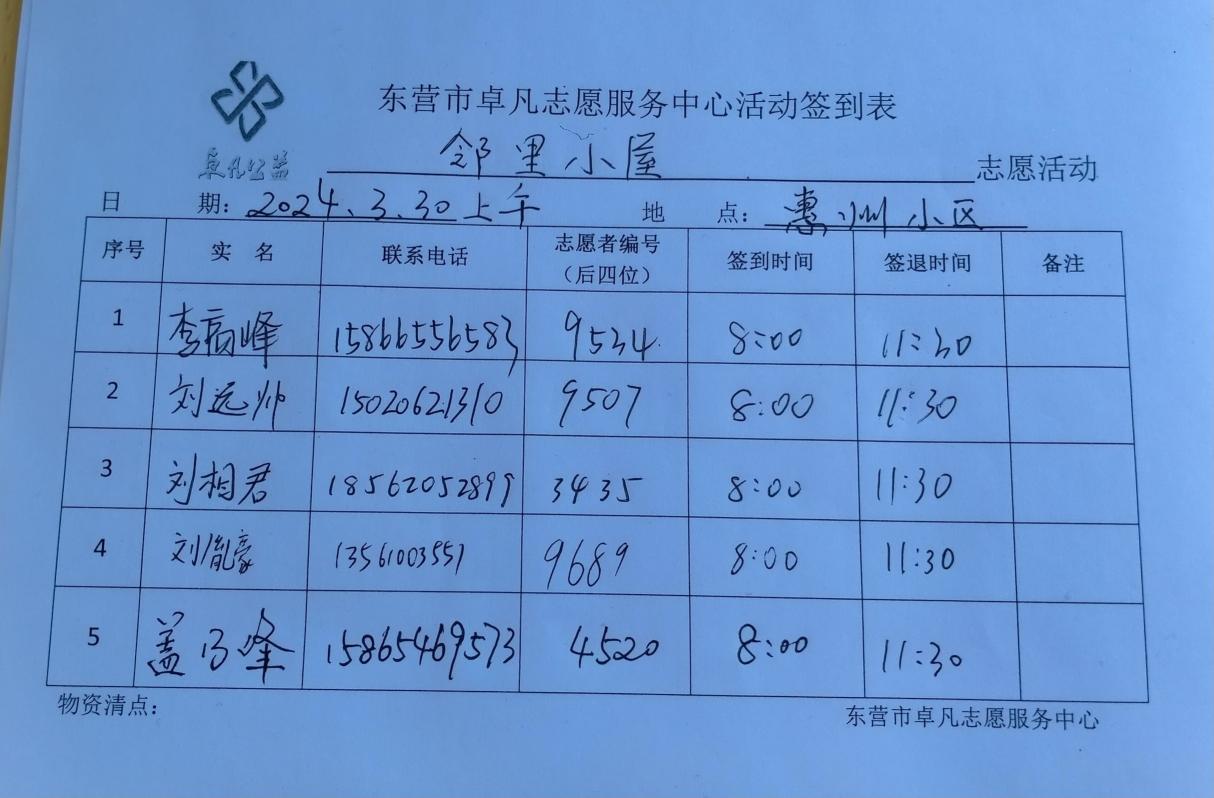 东营市卓凡志愿服务中心活动签到表
卓凡公益
邻里小屋 志愿活动
日 期：2024.3.30上午 地 点：惠州小区
序号 实 名 联系电话 志愿者编号（后四位） 签到时间 签退时间 备注
1 李峰 15866556583 9534 8:00 11:30
2 刘远帅 15020621310 9507 8:00 11:30
3 刘相君 18562052899 3435 8:00 11:30
4 刘胤豪 13561003557 9689 8:00 11:30
5 盖峰 15865469573 4520 8:00 11:30
物资清点：
东营市卓凡志愿服务中心